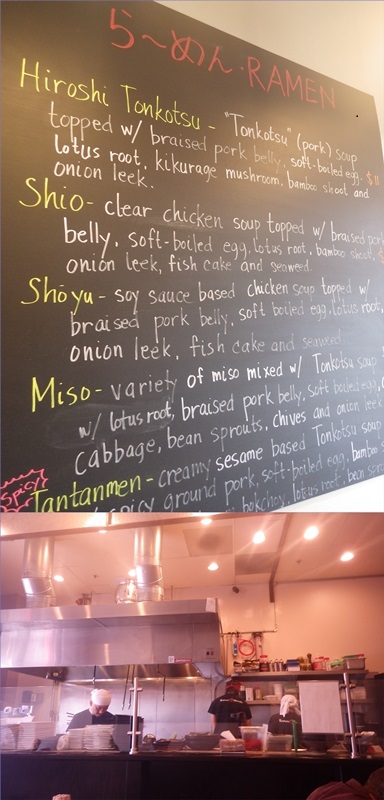 らーめん・RAMEN
Hiroshi Tonkotsu - "Tonkotsu" (pork) soup
topped w/ braised pork belly, soft-boiled egg,
lotus root, kikurage mushroom, bamboo shoot and
onion leek. $11
Shio - clear chicken soup topped w/ braised pork
belly, soft-boiled egg, lotus root, bamboo shoot,
onion leek, fish cake and seaweed.
Shoyu - soy sauce based chicken soup topped w/
braised pork belly, soft boiled egg, lotus root,
onion leek, fish cake and seaweed.
Miso - variety of miso mixed w/ Tonkotsu soup
w/ lotus root, braised pork belly, soft boiled egg,
cabbage, bean sprouts, chives and onion leek
SPICY
Tantanmen - creamy sesame based Tonkotsu soup
spicy ground pork, soft-boiled egg, bamboo
bokchoy, lotus root, bean